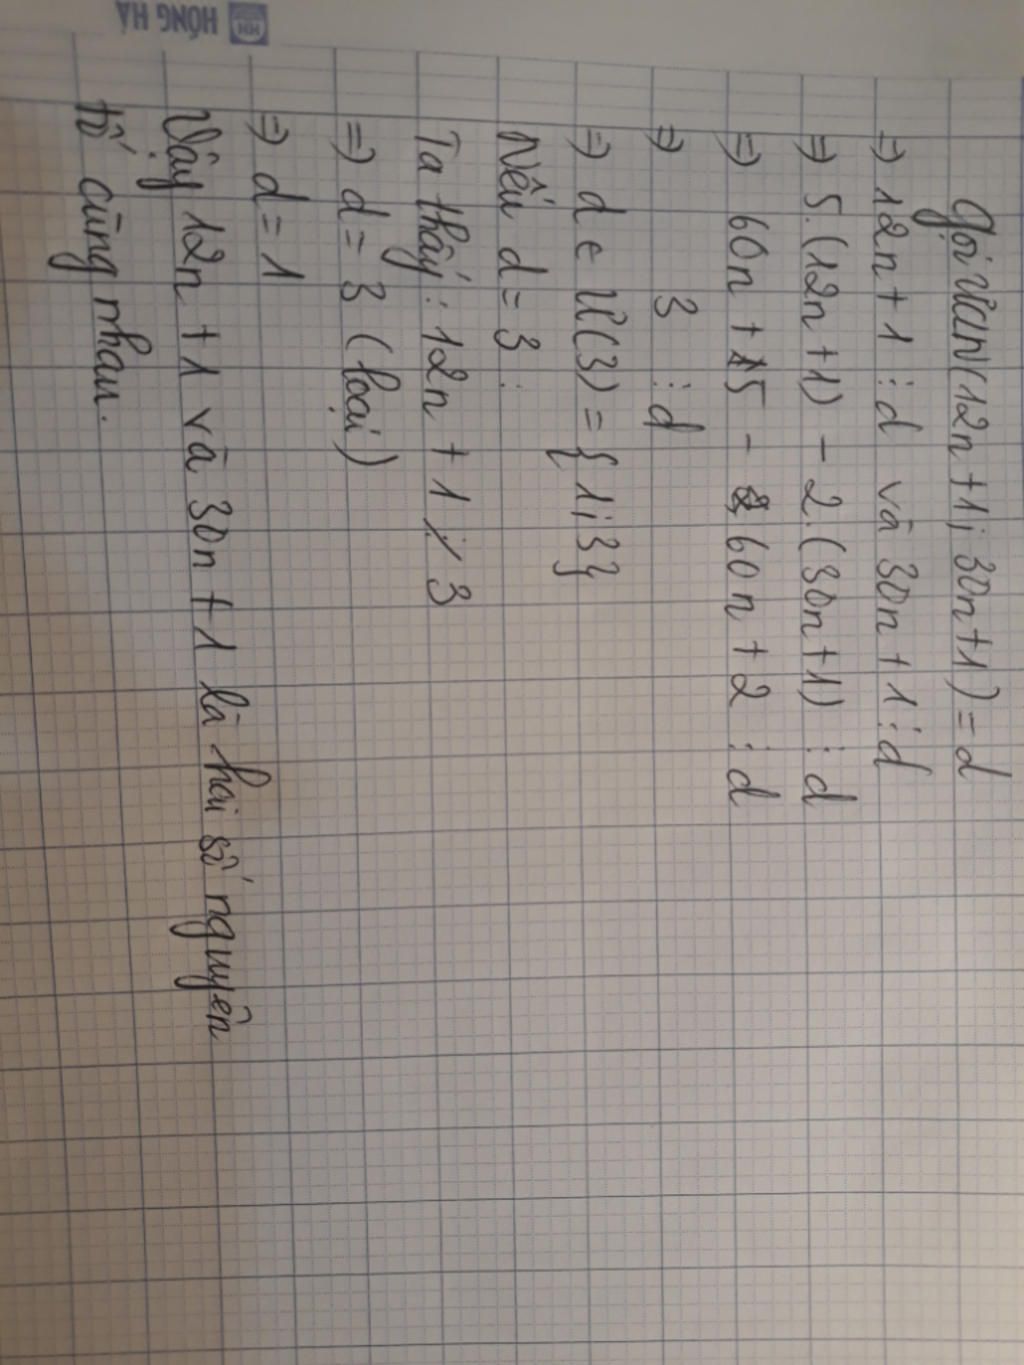 HỒNG HÀ
HH
Gọi ƯCLN(12n+1; 30n+1) = d
=> 12n+1 ⋮ d và 30n+1 ⋮ d
=> 5.(12n+1) - 2.(30n+1) ⋮ d
=> 60n + 5 - 60n + 2 ⋮ d
=> 3 ⋮ d
=> d ∈ Ư(3) = {1;3}
Nếu d = 3 :
Ta thấy : 12n + 1 ⋮̸ 3
=> d = 3 (loại)
=> d = 1
Vậy 12n + 1 và 30n + 1 là hai số nguyên
tố cùng nhau.